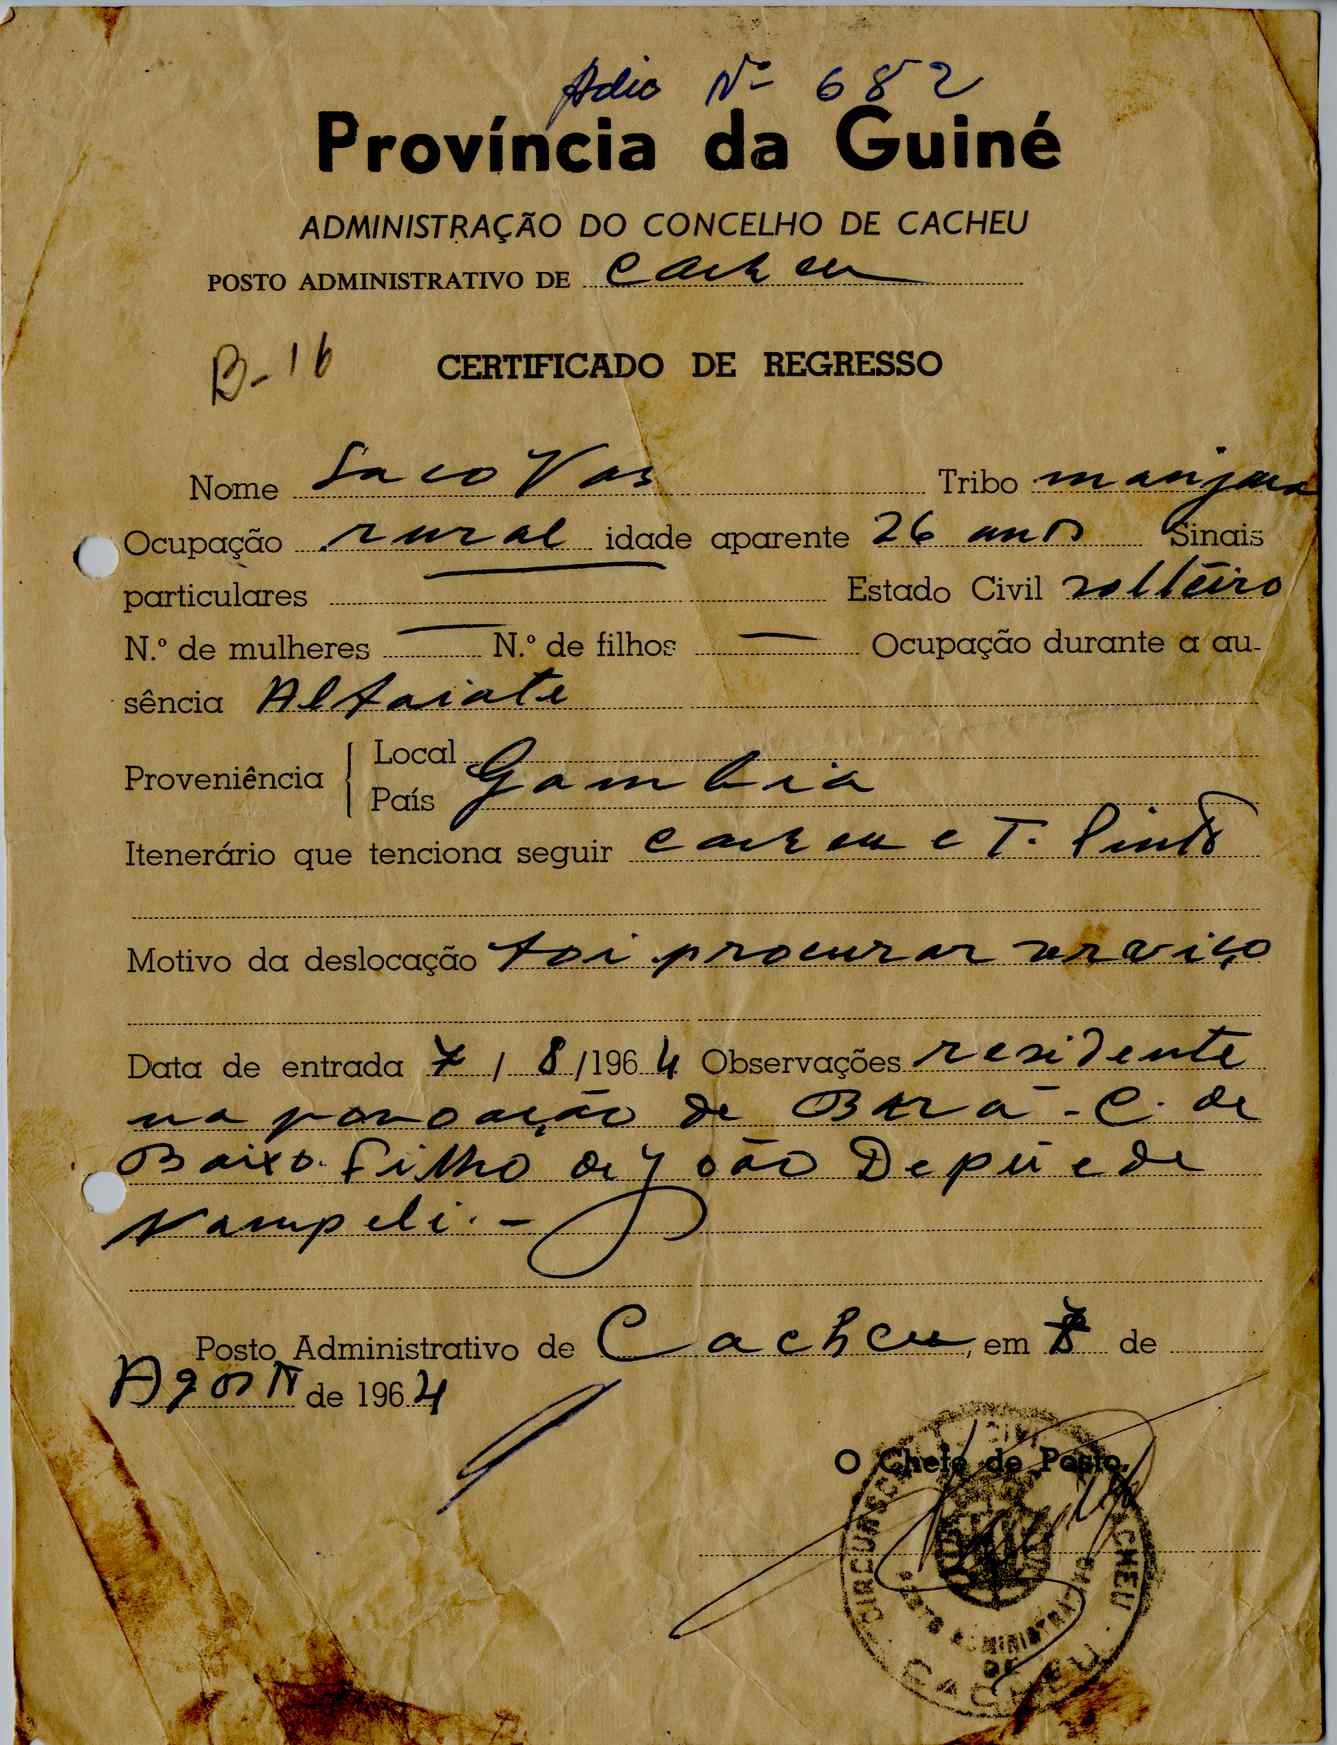 Adic Nº 682
Província da Guiné
ADMINISTRAÇÃO DO CONCELHO DE CACHEU
POSTO ADMINISTRATIVO DE Cacheu
B-16
CERTIFICADO DE REGRESSO
Nome Saco Vas Tribo manjaca
Ocupação rural idade aparente 26 anos Sinais
particulares Estado Civil solteiro
N.º de mulheres — N.º de filhos — Ocupação durante a au-
sência Alfaiate
Proveniência Local
País Gambia
Itenerário que tenciona seguir Cacheu e T. Pinto
Motivo da deslocação foi procurar serviço
Data de entrada 7/8/1964 Observações residente
na povoação de Bará - C. de
Baixo. filho de João Depú e de
Nampeli. -
Posto Administrativo de Cacheu, em 8 de
Agosto de 1964
O Chefe do Posto,
POSTO ADMINISTRATIVO
DE
CACHEU